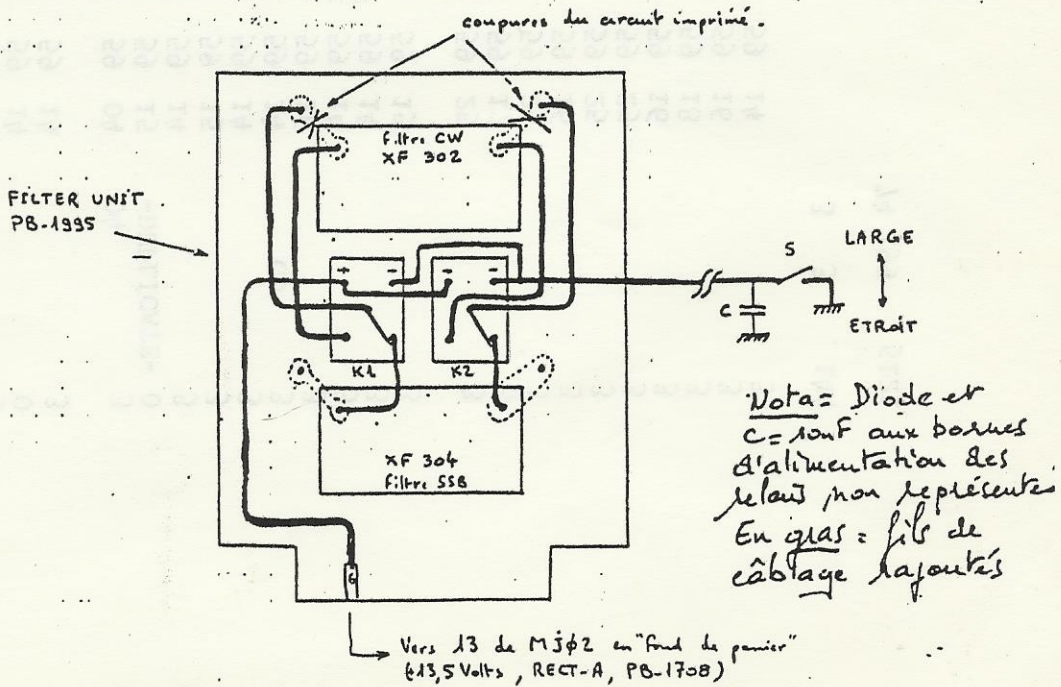 coupures du circuit imprimé.
Filtre CW
XF 302
FILTER UNIT
PB-1995
LARGE
S
C
ETROIT
+ - - -
K1 K2
XF 304
Filtre SSB
Nota= Diode et
C= sont aux bornes
d'alimentation des
relais non représentés
En gras = fils de
câblage rajoutés
6
Vers 13 de MJφ2 en "fond de panier"
(+13,5 Volts, RECT-A, PB-1708)